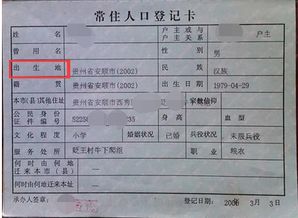 常住人口登记卡
姓名 户主或与户主关系 户主
曾用名 性别 男
出生地 贵州省安顺市(2002) 民族 汉族
籍贯 贵州省安顺市(2002) 出生日期 1979-04-29
本市(县)其他住址 贵州省安顺市西秀 宗教信仰
公民身份证件编号 52250 35 身高
文化程度 小学 婚姻状况 已婚 兵役状况 未服兵役
服务处所 贬王村牛下爬组 职业 粮农
何时由何地迁来本市(县)
何时由何地迁来本址
承办人签章 登记日期: 3月3日